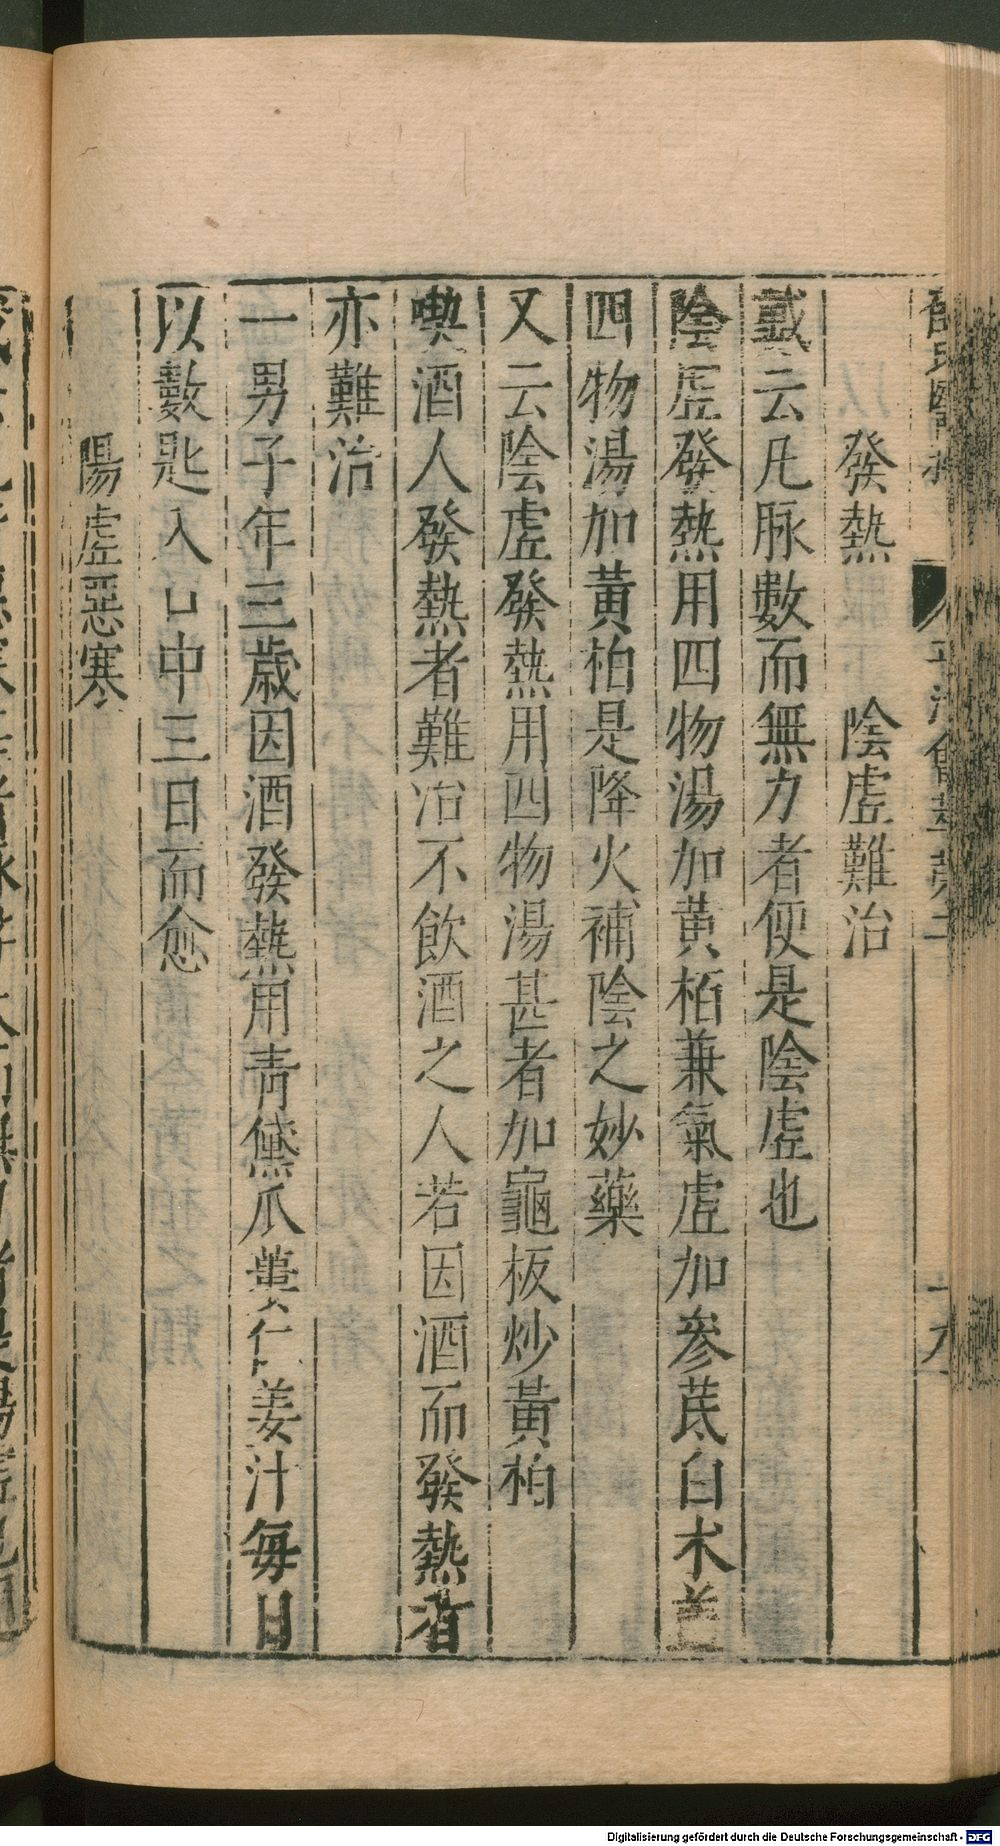 發熱　　陰虛難治
戴云凡脉數而無力者便是陰虛也
陰虛發熱用四物湯加黄栢兼氣虛加參茋白术盖
四物湯加黄柏是降火補陰之妙藥
又云陰虛發熱用四物湯甚者加龜板炒黃柏
喫酒人發熱者難治不飲酒之人若因酒而發熱者
亦難治
一男子年三歳因酒發熱用青黛瓜蔞仁姜汁每日
以數匙入口中三日而愈
陽虛惡寒
Digitalisierung gefördert durch die Deutsche Forschungsgemeinschaft - DFG